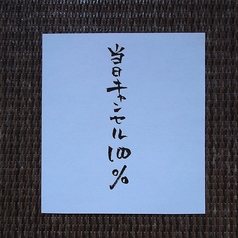 当日キャンセル100%